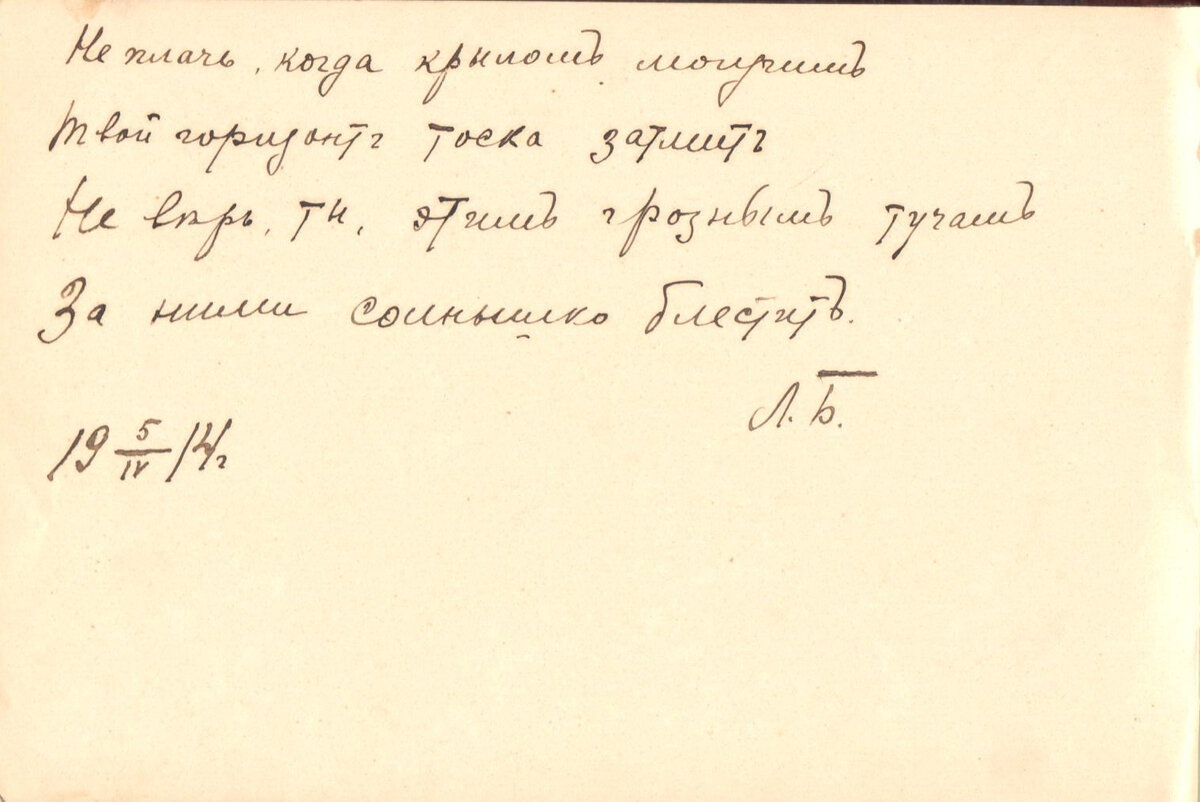 Не плачь, когда крыломъ могучимъ
Твой горизонтъ тоска затмитъ
Не вѣрь, ты, этимъ грознымъ тучамъ
За ними солнышко блеститъ.
Л. Б.
19 5/IV 14г